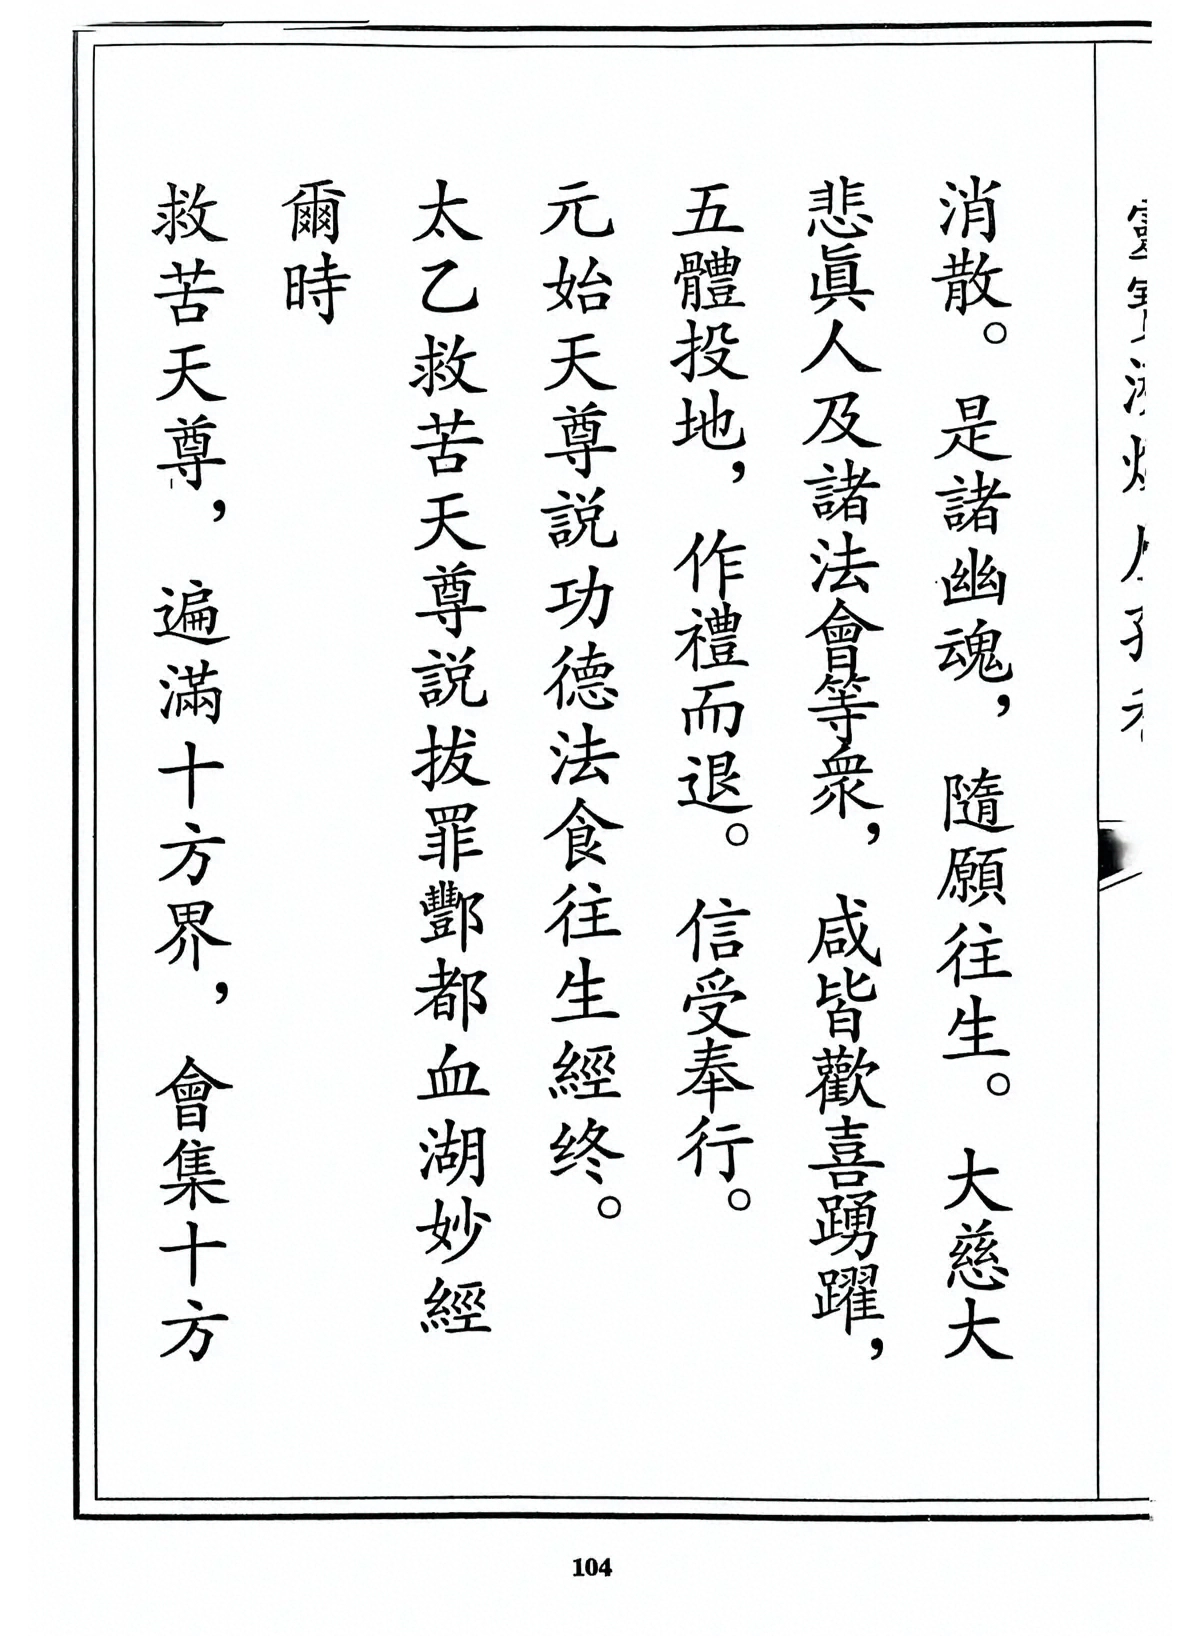 消散。是諸幽魂，隨願往生。大慈大
悲眞人及諸法會等衆，咸皆歡喜踴躍，
五體投地，作禮而退。信受奉行。
元始天尊説功德法食往生經终。
太乙救苦天尊説拔罪酆都血湖妙經
爾時
救苦天尊，遍滿十方界，會集十方
104